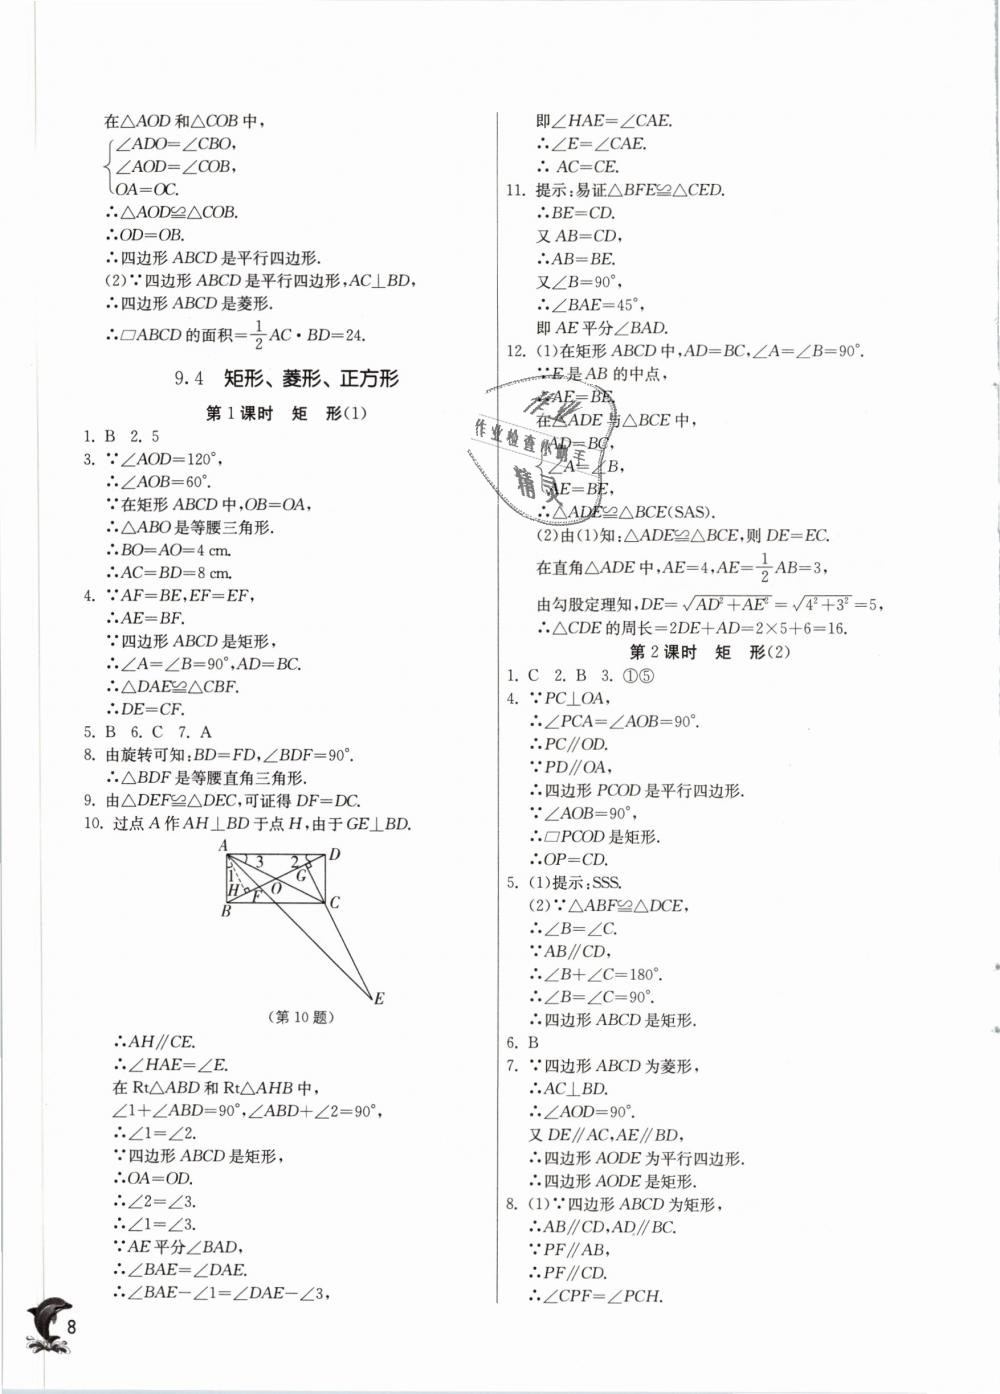 在△AOD 和△COB 中，
∠ADO=∠CBO，
∠AOD=∠COB，
OA=OC.
∴△AOD≌△COB.
∴OD=OB.
∴四边形 ABCD 是平行四边形.
(2)∵四边形 ABCD 是平行四边形，AC⊥BD，
∴四边形 ABCD 是菱形.
∴□ABCD 的面积=1/2 AC·BD=24.
9.4 矩形、菱形、正方形
第 1 课时 矩 形(1)
1. B 2. 5
3. ∵∠AOD=120°，
∴∠AOB=60°.
∵在矩形 ABCD 中，OB=OA，
∴△ABO 是等腰三角形.
∴BO=AO=4 cm.
∴AC=BD=8 cm.
4. ∵AF=BE，EF=EF，
∴AE=BF.
∵四边形 ABCD 是矩形，
∴∠A=∠B=90°，AD=BC.
∴△DAE≌△CBF.
∴DE=CF.
5. B 6. C 7. A
8. 由旋转可知：BD=FD，∠BDF=90°.
∴△BDF 是等腰直角三角形.
9. 由△DEF≌△DEC，可证得 DF=DC.
10. 过点 A 作 AH⊥BD 于点 H，由于 GE⊥BD.
A
3
2
D
1
G
H
F
O
B
C
E
(第 10 题)
∴AH∥CE.
∴∠HAE=∠E.
在 Rt△ABD 和 Rt△AHB 中，
∠1+∠ABD=90°，∠ABD+∠2=90°，
∴∠1=∠2.
∵四边形 ABCD 是矩形，
∴OA=OD.
∴∠2=∠3.
∴∠1=∠3.
∵AE 平分∠BAD，
∴∠BAE=∠DAE.
∴∠BAE−∠1=∠DAE−∠3，
8
即∠HAE=∠CAE.
∴∠E=∠CAE.
∴ AC=CE.
11. 提示：易证△BFE≌△CED.
∴BE=CD.
又 AB=CD，
∴AB=BE.
又∠B=90°，
∴∠BAE=45°，
即 AE 平分∠BAD.
12. (1)在矩形 ABCD 中，AD=BC，∠A=∠B=90°.
∵E 是 AB 的中点，
∴AE=BE.
在△ADE 与△BCE 中，
AD=BC，
∠A=∠B，
AE=BE，
∴△ADE≌△BCE(SAS).
(2)由(1)知：△ADE≌△BCE，则 DE=EC.
在直角△ADE 中，AE=4，AE=1/2 AB=3，
由勾股定理知，DE=√(AD²+AE²)=√(4²+3²)=5，
∴△CDE 的周长=2DE+AD=2×5+6=16.
第 2 课时 矩 形(2)
1. C 2. B 3. ①⑤
4. ∵PC⊥OA，
∴∠PCA=∠AOB=90°.
∴PC∥OD.
∵PD∥OA，
∴四边形 PCOD 是平行四边形.
∵∠AOB=90°，
∴□PCOD 是矩形.
∴OP=CD.
5. (1)提示：SSS.
(2)∵△ABF≌△DCE，
∴∠B=∠C.
∵AB∥CD，
∴∠B+∠C=180°.
∴∠B=∠C=90°.
∴四边形 ABCD 是矩形.
6. B
7. ∵四边形 ABCD 为菱形，
∴AC⊥BD.
∴∠AOD=90°.
又 DE∥AC，AE∥BD，
∴四边形 AODE 为平行四边形.
∴四边形 AODE 是矩形.
8. (1)∵四边形 ABCD 为矩形，
∴AB∥CD，AD∥BC.
∵PF∥AB，
∴PF∥CD.
∴∠CPF=∠PCH.
作业
作业检查小帮手
精灵